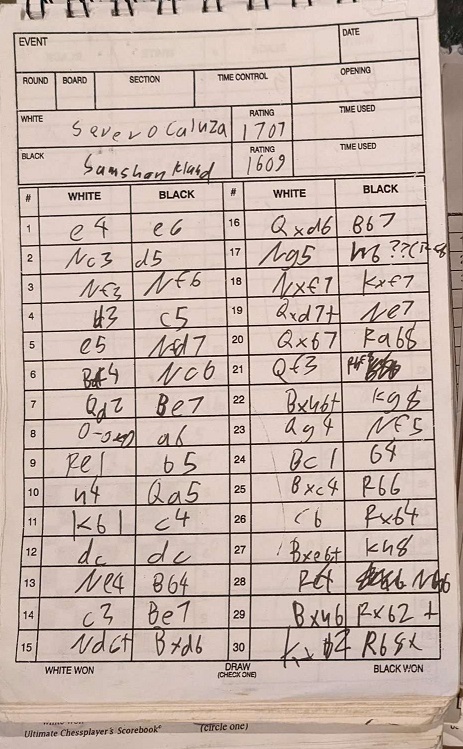 EVENT DATE
ROUND BOARD SECTION TIME CONTROL OPENING
WHITE Severo Caluza RATING 1707 TIME USED
BLACK RATING 1609 TIME USED
# WHITE BLACK # WHITE BLACK
1 e4 e6 16 Qxd6 B67
2 Nc3 d5 17 Ng5
3 Nf3 Nf6 18 Nxf7 Kxf7
4 c5 19 Qxd7+ Ne7
5 e5 Nfd7 20 Qx67 Ra68
6 Nc6 21 Qf3
7 Qd2 Be7 22 Bxh6+ Kg8
8 a6 23 Qg4 Nf5
9 Re1 b5 24 Bc1 64
10 h4 Qa5 25 Bxc4 R66
11 K61 c4 26 c6 Rx64
12 dc dc 27 Bxe6+ Kh8
13 Ne4 B64 28
14 c3 Be7 29 Bxh6 Rx62+
15 Nd6+ Bxd6 30 R68x
WHITE WON DRAW (CHECK ONE) BLACK WON
Ultimate Chessplayer's Scorebook (circle one)